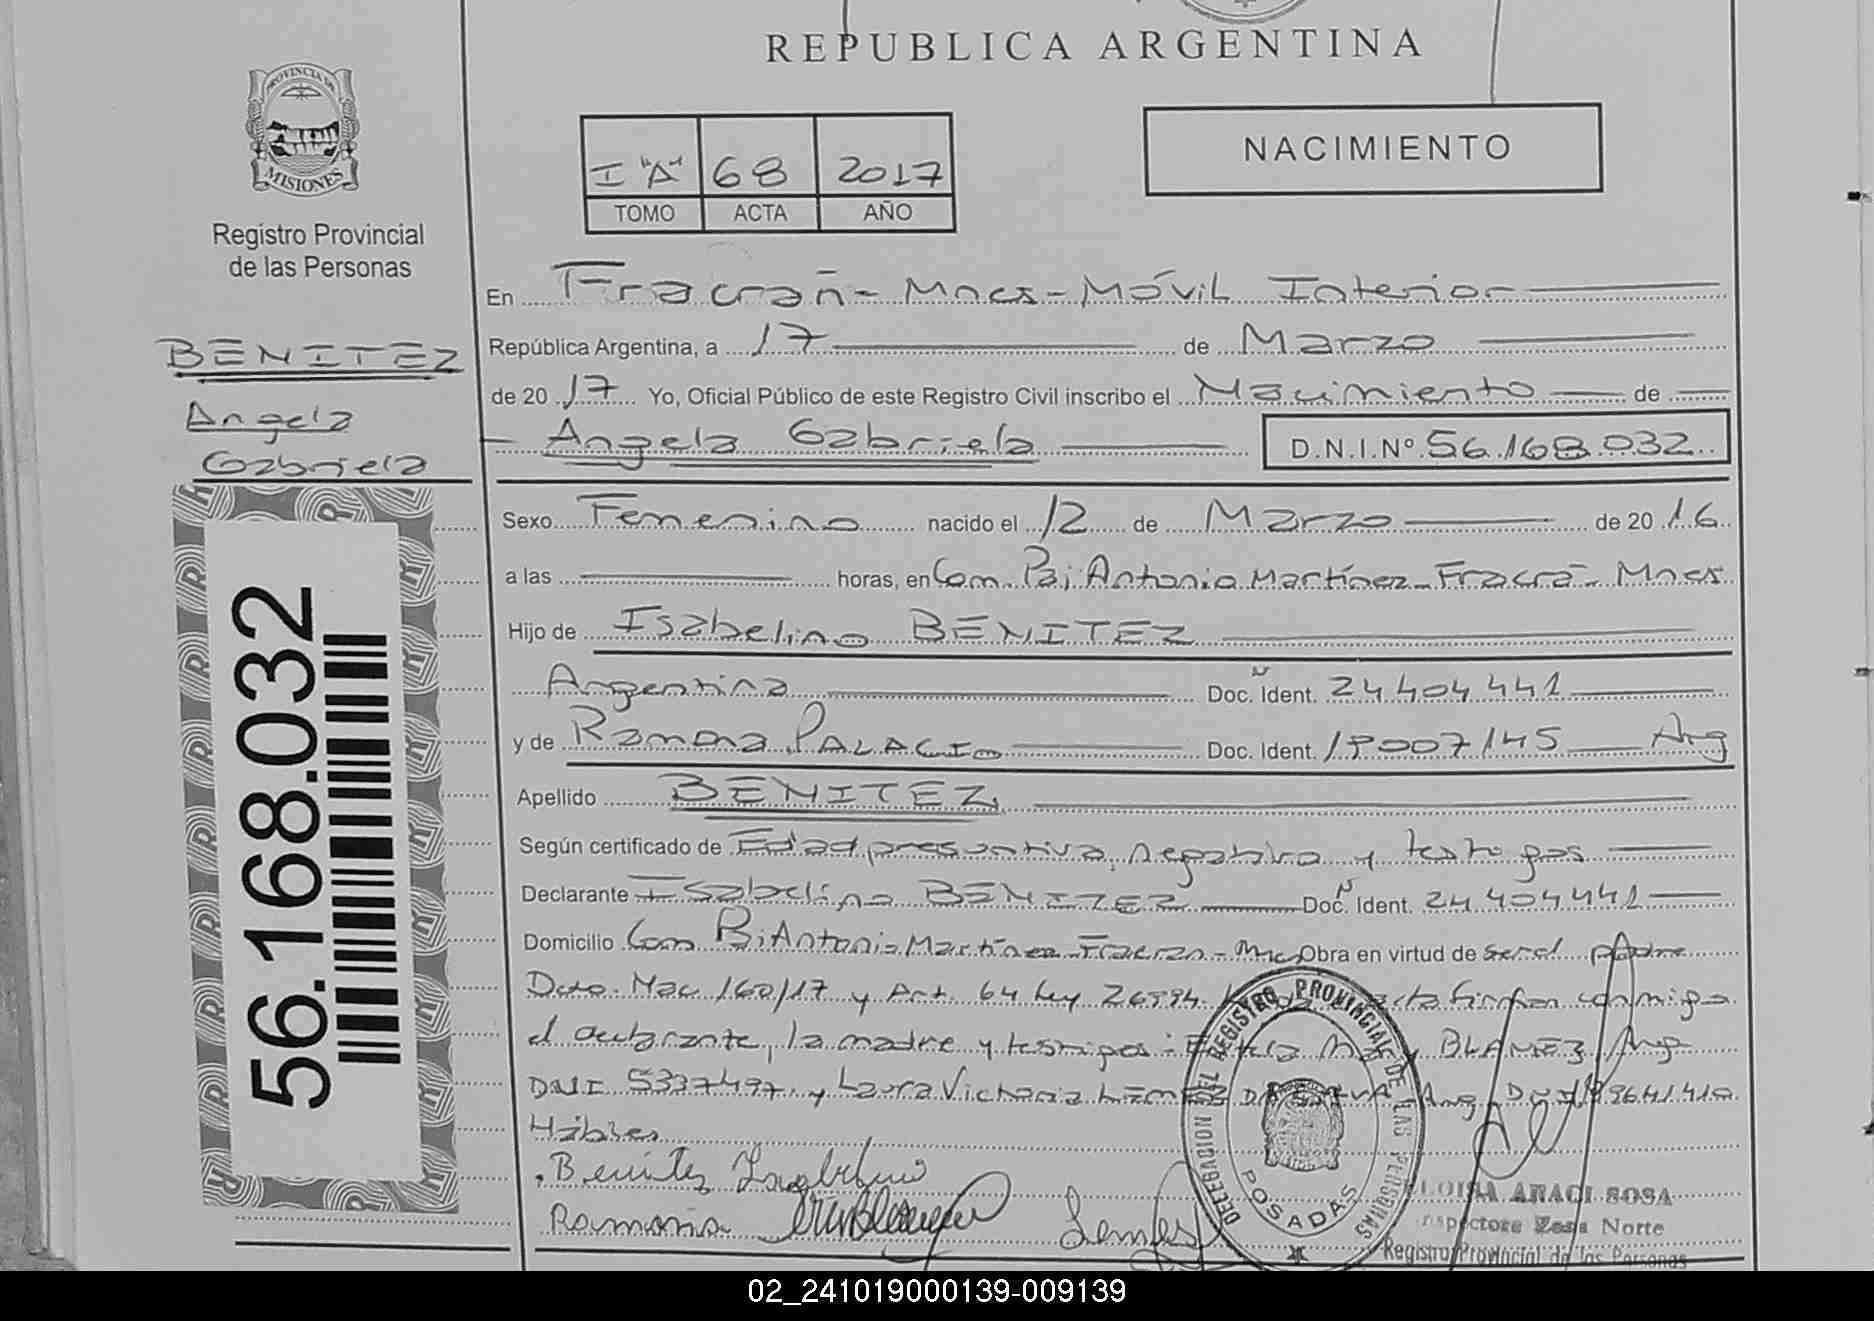 REPUBLICA ARGENTINA
PROVINCIA DE
MISIONES
Registro Provincial
de las Personas
I "A" 68 2017
TOMO ACTA AÑO
NACIMIENTO
BENITEZ
Angela
Gabriela
56.168.032
En Fracrañ - Mnes - Móvil Interior
República Argentina, a 17 de Marzo
de 2017 Yo, Oficial Público de este Registro Civil inscribo el Nacimiento de
Angela Gabriela D.N.I.Nº 56.168.032
Sexo Femenino nacido el 12 de Marzo de 2016
a las horas, en Com. Pai Antonio Martínez - Fracra - Mnes
Hijo de Isabelino BENITEZ
Argentina Doc. Ident. 24.404.441
y de Ramona PALACIO Doc. Ident. 19007145 Arg
Apellido BENITEZ
Según certificado de Edad presuntiva, negativo y testigos
Declarante Isabelino BENITEZ Doc. Ident. 24.404.441
Domicilio Com Pai Antonio Martínez - Fracran - Mnes Obra en virtud de ser el padre
Dcto. Nac 160/17 y Art. 64 Ley 26994. acta firman conmigo
el declarante, la madre y testigos: BLANEZ Arg
DNI 5337497 y Laura Victoria Arg DNI
Hábiles
Benitez Isabelino
Ramona
Lemes
DELEGACION DEL REGISTRO PROVINCIAL DE LAS PERSONAS
POSADAS
ELOISA ARACI SOSA
Inspectora Zona Norte
Registro Provincial de las Personas
02_241019000139-009139